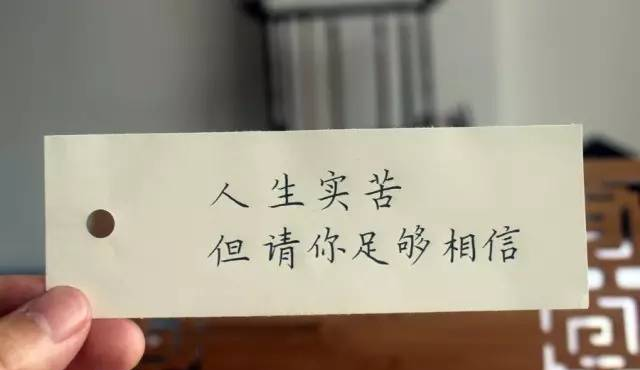 人生实苦
但请你足够相信